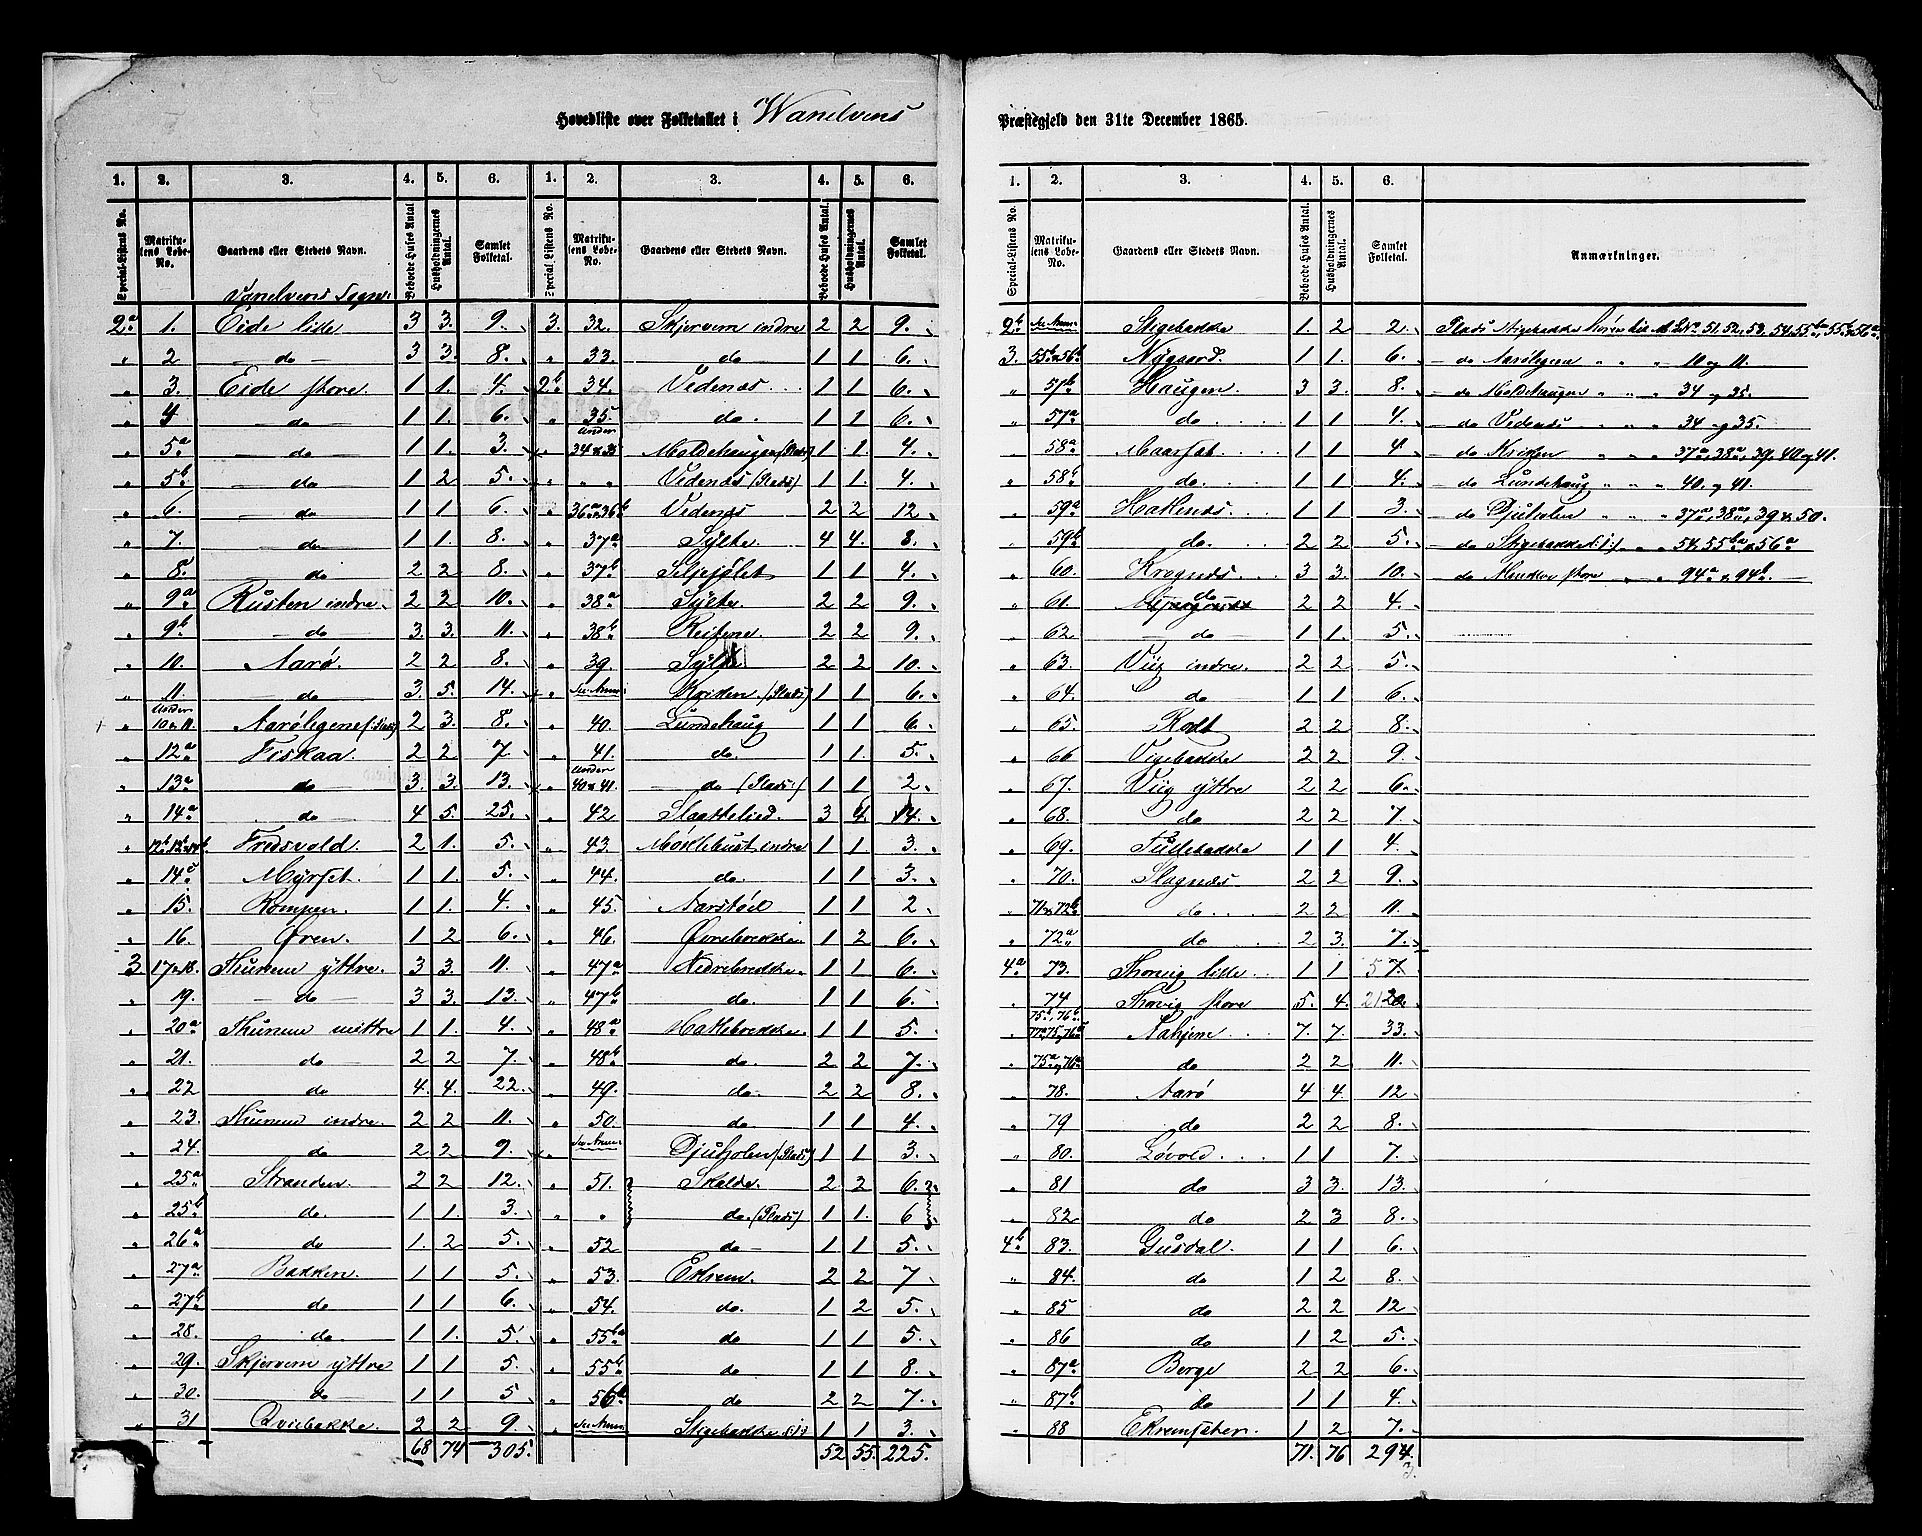 Hovedliste over Folketallet i Wanelvens Præstegjeld den 31te December 1865.
1. 2. 3. 4. 5. 6. 1. 2. 3. 4. 5. 6.
Special-Listens No. Matrikulens Løbe-No. Gaardens eller Stedets Navn. Beboede Huses Antal Husholdningernes Antal. Samlet Folketal. Special Listens No. Matrikulens Løbe-No. Gaardens eller Stedets Navn. Beboede Huses Antal. Husholdningernes Antal. Samlet Folketal.
Vanelvens Sogn:
2a 1. Eide lille 3 3. 9. 3. 32. Skjervem indre 2 2 9.
" 2 — do — 3 3. 8. " 33. do 1 1 6.
" 3. Eide store. 1 1. 4. 2b 34. Vedenæs 1 1 6.
" 4 — do — 1 1 6. " 35 do. 1 1 6.
" 5a — do — 1 1. 3. " Under 34 & 35 Moldehaugen (Plads) 1 1. 4.
" 5b — do 1 2 5. " " " Vedenæs (Plads) 1 1. 4.
" 6. — do 1 1 6. " 36a & 36b Vedenæs 2 2 12
" 7. — do 1 1. 8. " 37a Sylte 4 4. 8.
" 8. do 2 2 8. " 37b Seljesølet 1 1 4.
" 9a Rusten indre 2 2 10. " 38a Sylte 2 2 9.
" 9b — do 3. 3. 11. " 38b Reitene. 2 2 9.
" 10. Aarø. 2 2 8. " 39. Sylte 2 2 10.
" 11. — do 3. 5. 14. " See Anm: Kriken. (Plads) 1 1 6.
" Under 10 & 11. Aarølegene (Plads) 2 3. 8. " 40. Lundehaug 1 1 6.
" 12a Fiskaa. 2 2 7 " 41. do. 1 1. 5.
" 13a do 3. 3. 13. " Under 40 & 41. — do (Plads) 1 1 2.
" 14a do 4 5. 25. " 42 Slaattelied. 3 4. 14.
" Fredsvold 2 1. 5. " 43. Møklebust indre 1 1 3.
" 14c Myrset 1 1. 5. " 44. do. 1 1 3.
" 15. Rompen. 1 1. 4. " 45. Aarstøil 1 1 2
" 16. Øren. 1 2 6. " 46. Øvrebrekke. 1 2 6.
3 17 & 18. Thunem yttre. 3 3. 11. " 47a Nedrebrekke. 1 1 6.
" 19. — do — 3 3. 13. " 47b do. 1 1 6.
" 20a Thunem mittre 1 1 4. " 48a Hatlebrekke. 1 1 5.
" 21. do 2 2 7. " 48b do. 2 2 7.
" 22 do 4. 4. 22. " 49. do. 2 2 8.
" 23. Thunem indre. 2 2 11. " 50. do 1 1 4.
" 24. do 2 2 9. " See Anm: Djuholen (Plads) 1 1 3.
" 25a Stranden 2 2 12. " 51. Skeide. 2 2 6.
" 25b do. 1 1. 3. " " do. (Plads) 1 1. 6
" 26a do 1. 2 5. " 52 do — 1 1 5.
" 27a Bakken. 1 1 5. " 53. Ekrem. 2 2 7
" 27b do 1 1 6. " 54. do. 1 2 5.
" 28. do. 1 1. 5. " 55ba do 1 1 5.
" 29. Skjervem yttre 1 1 5. " 55b do 1 1 8.
" 30. do — 1 1 5 " 56b do 2 2 7.
" 31 Qviebakke. 2 2 9. " See Anm: Stigebakke 1 1 3.
68 74 305. 52 55. 225.
1. 2. 3. 4. 5. 6.
Special-Listens No. Matrikulens Løbe-No. Gaardens eller Stedets Navn. Beboede Huses Antal. Husholdningernes Antal. Samlet Folketal. Anmærkninger.
2b See Anm: Stigebakke 1. 2 2. Plads Stigebakke 51, 52, 53, 54, 55b
3. 55b & 56b Nygaard. 1 1. 6. — do Aarølegene " " " 10 og 11.
" 57b Haugen 3 3. 8. — do Moldehaugen " " " 34 og 35.
" 57a do 1 1. 4. — do Vedenæs " " 34 og 35.
" 58a Maarsæt. 1 1 4. — do Kriken " " " 37a, 38a, 39, 40 og 41.
" 58b do. 1 1 4. — do Lundehaug " " " 40. og 41.
" 59a Hakenæs. 1 1 3. — do Djuholen " " " 37a, 38a, 39 & 50.
" 59b do. 2 2 5. — do Stigebakke " " 54, 55ba & 56a
" 60. Kragnæs. 3 3. 10. do store " " 94a & 94b. —
" 61. do 2 2 4.
" 62 — do — 1 1. 5.
" 63. Viig indre. 2 2 5.
" 64. do 1 1 6.
" 65. Rodt 2 2 8.
" 66. Vigebakke 2 2 9.
" 67. Viig yttre 2 2 6.
" 68. do 2 2 7.
" 69. Tuebakke 1 1 4.
" 70. Slagnæs 2 2 9.
" 71 & 72b do 2 2 11.
" 72a do 2 3. 7.
4a 73. Thorvig lille 1 1 57.
" 74 Thorvig store 5. 4. 2120.
" Aahjem 7. 7. 33.
" 75a og 76a do 2 2 11.
" 78. Aarø 4 4. 12
" 79 do 2 2 8.
" 80. Løvold. 1 1 7.
" 81 do 3 3. 13.
" 82 do 2 3 8.
4b 83. Gusdal. 1 1 6.
" 84. do 1 2 8.
" 85 do 2 2 12
" 86 do 1 2 5.
" 87a Berge 2 2 6.
" 87b do 1 1 4.
" 88 Ekremsæter. 1 2 7.
71. 76 294.
3.